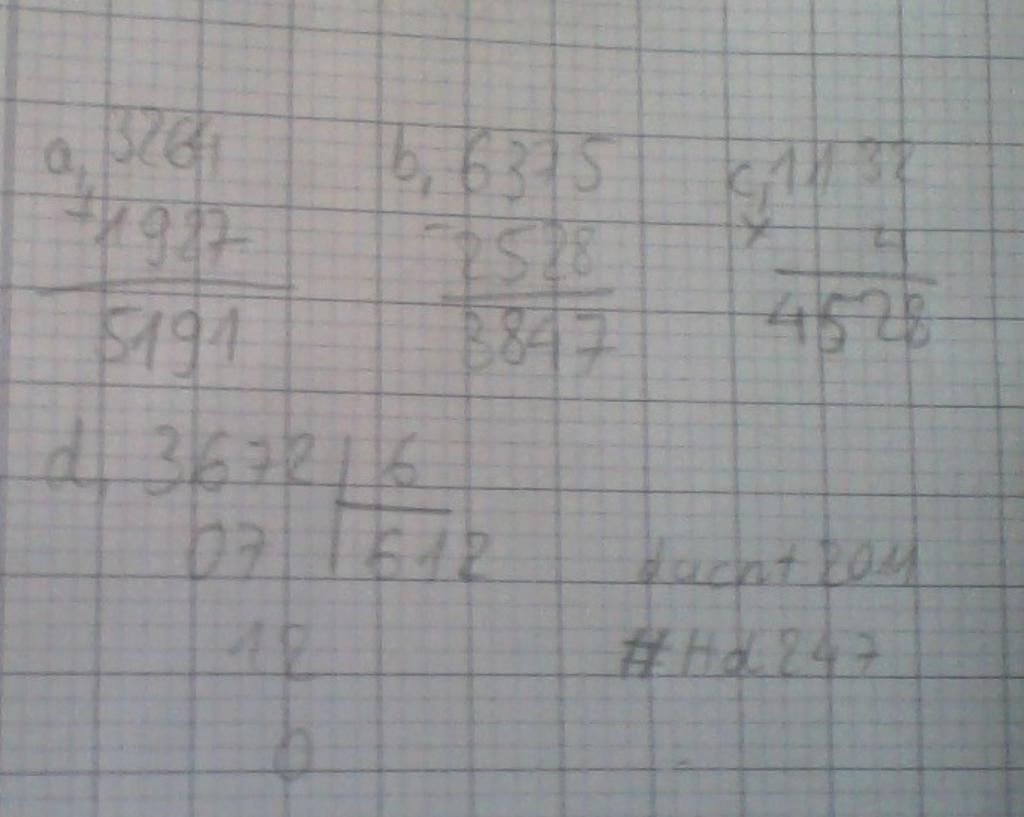 a, 3264 b, 6375 c, 1132
+ 1927 - 2528 x 4
5191 3847 4528
d, 3672 6
07 612
12 #Hd247
0